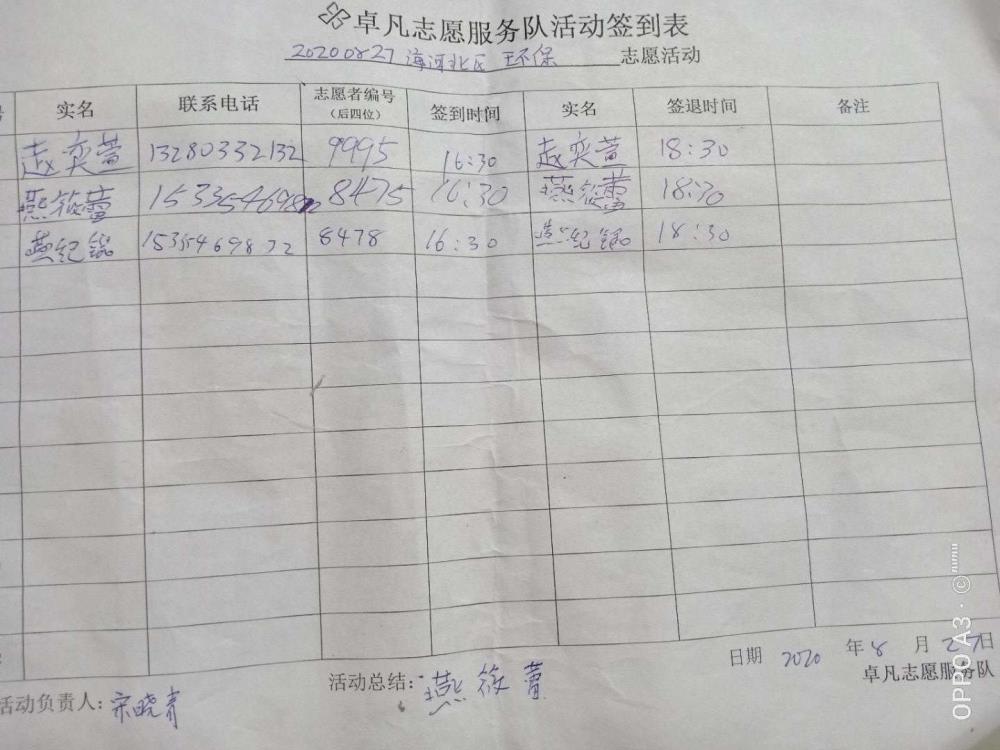 卓凡志愿服务队活动签到表
20200827 海河北区 环保 志愿活动
实名 联系电话 志愿者编号（后四位） 签到时间 实名 签退时间 备注
赵奕萱 13280332132 9995 16:30 赵奕萱 18:30
燕筱蕾 8475 16:30 燕筱蕾 18:30
燕纪锟 15354698722 8478 16:30 燕纪锟 18:30
日期 2020 年 8 月 27 日
卓凡志愿服务队
活动负责人: 宋晓青
活动总结: 燕筱蕾
OPPO A3 · ©nunu